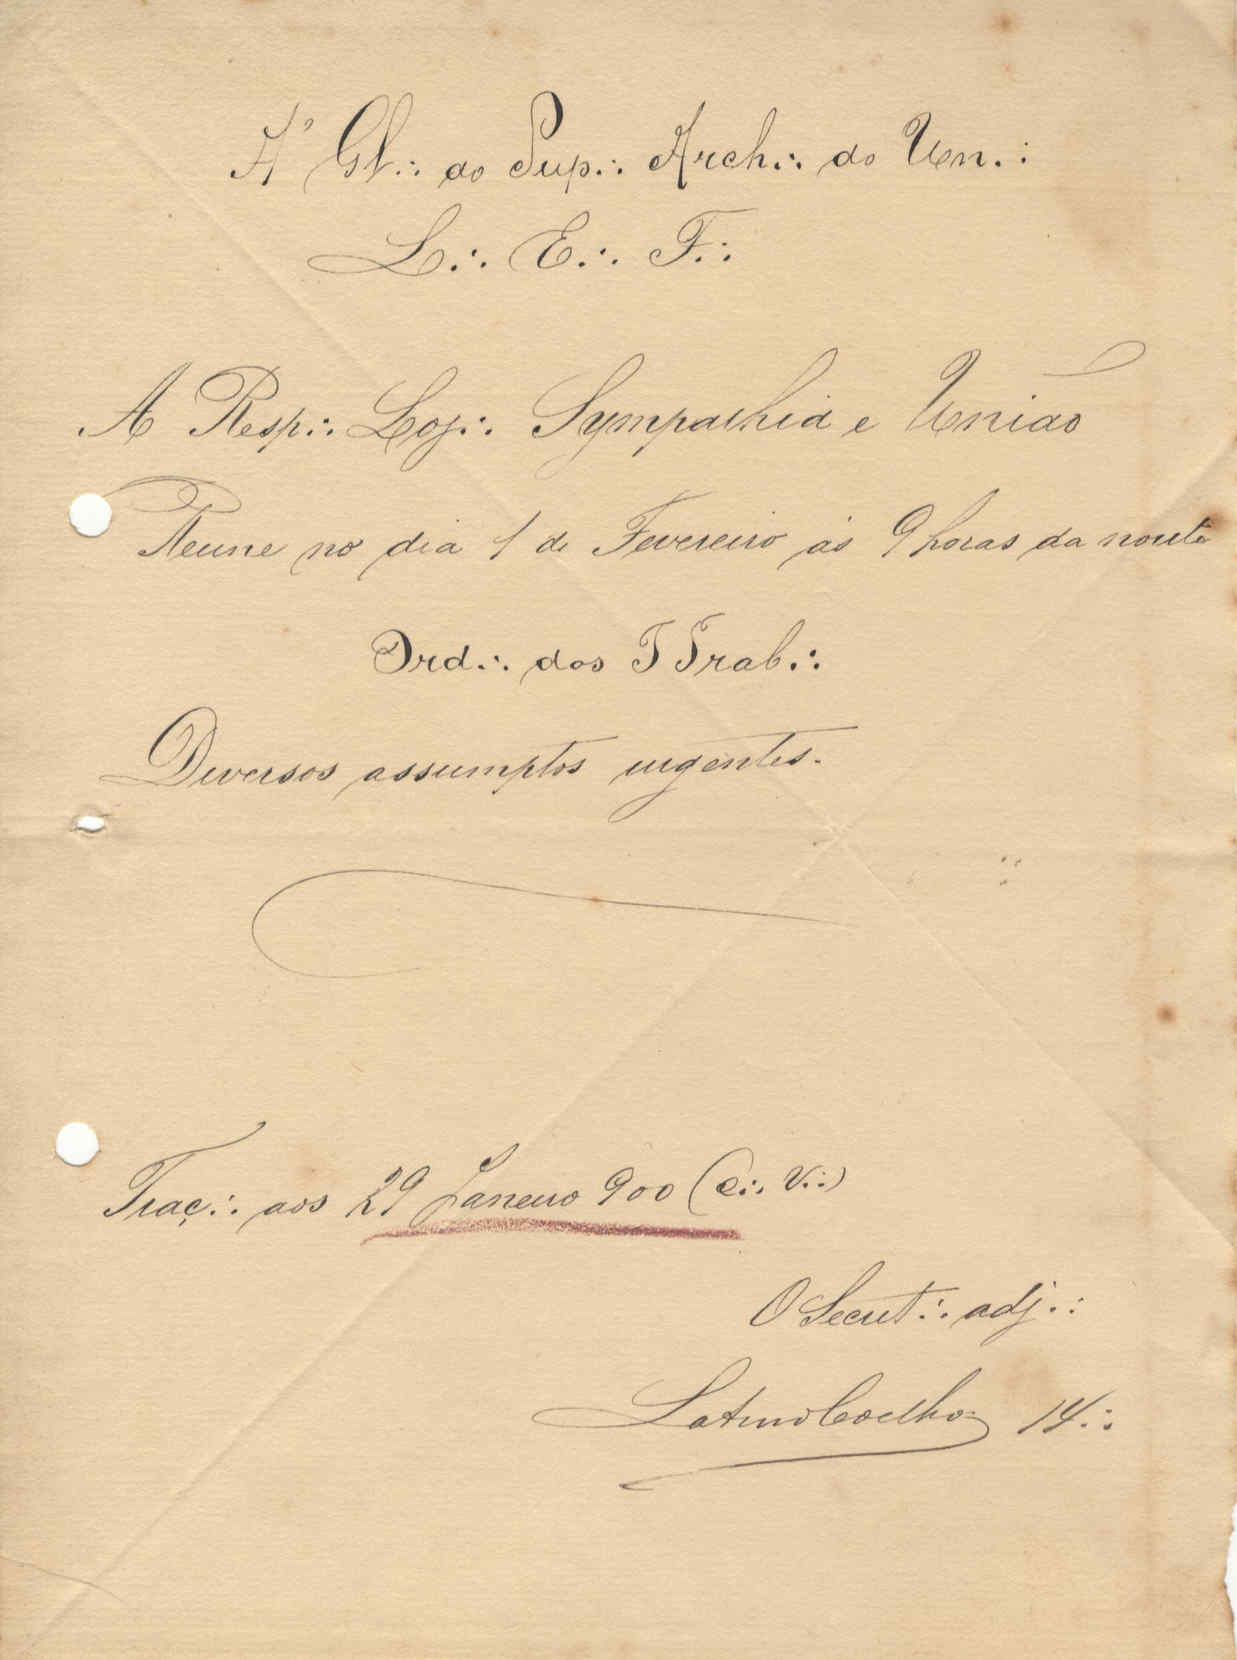 A' Gl∴ do Sup∴ Arch∴ do Un∴
L∴ E∴ F∴
A Resp∴ Loj∴ Sympathia e União
Reune no dia 1 de Fevereiro ás 9 horas da noute
Ord∴ dos TTrab∴
Diversos assumptos urgentes.
Traç∴ aos 29 Janeiro 900 (e∴ v∴)
O Secret∴ adj∴
Latino Coelho 14∴